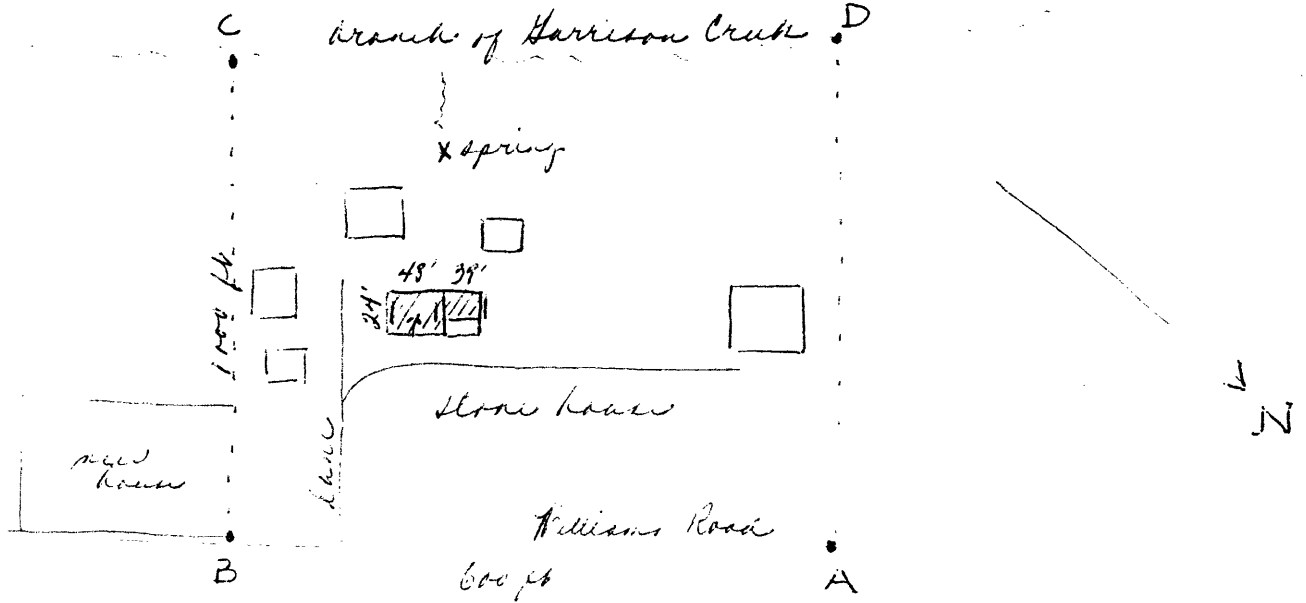 C
branch of Garrison Creek
D
x spring
48' 39'
24'
1000 ft
stone house
lane
new house
N
Williams Road
B
600 ft
A